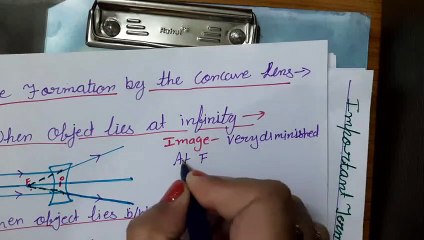 e Formation by the Concave lens→
When Object lies at infinity →
Image- Very diminished
At F
F
hen object lies b/w
Important Term